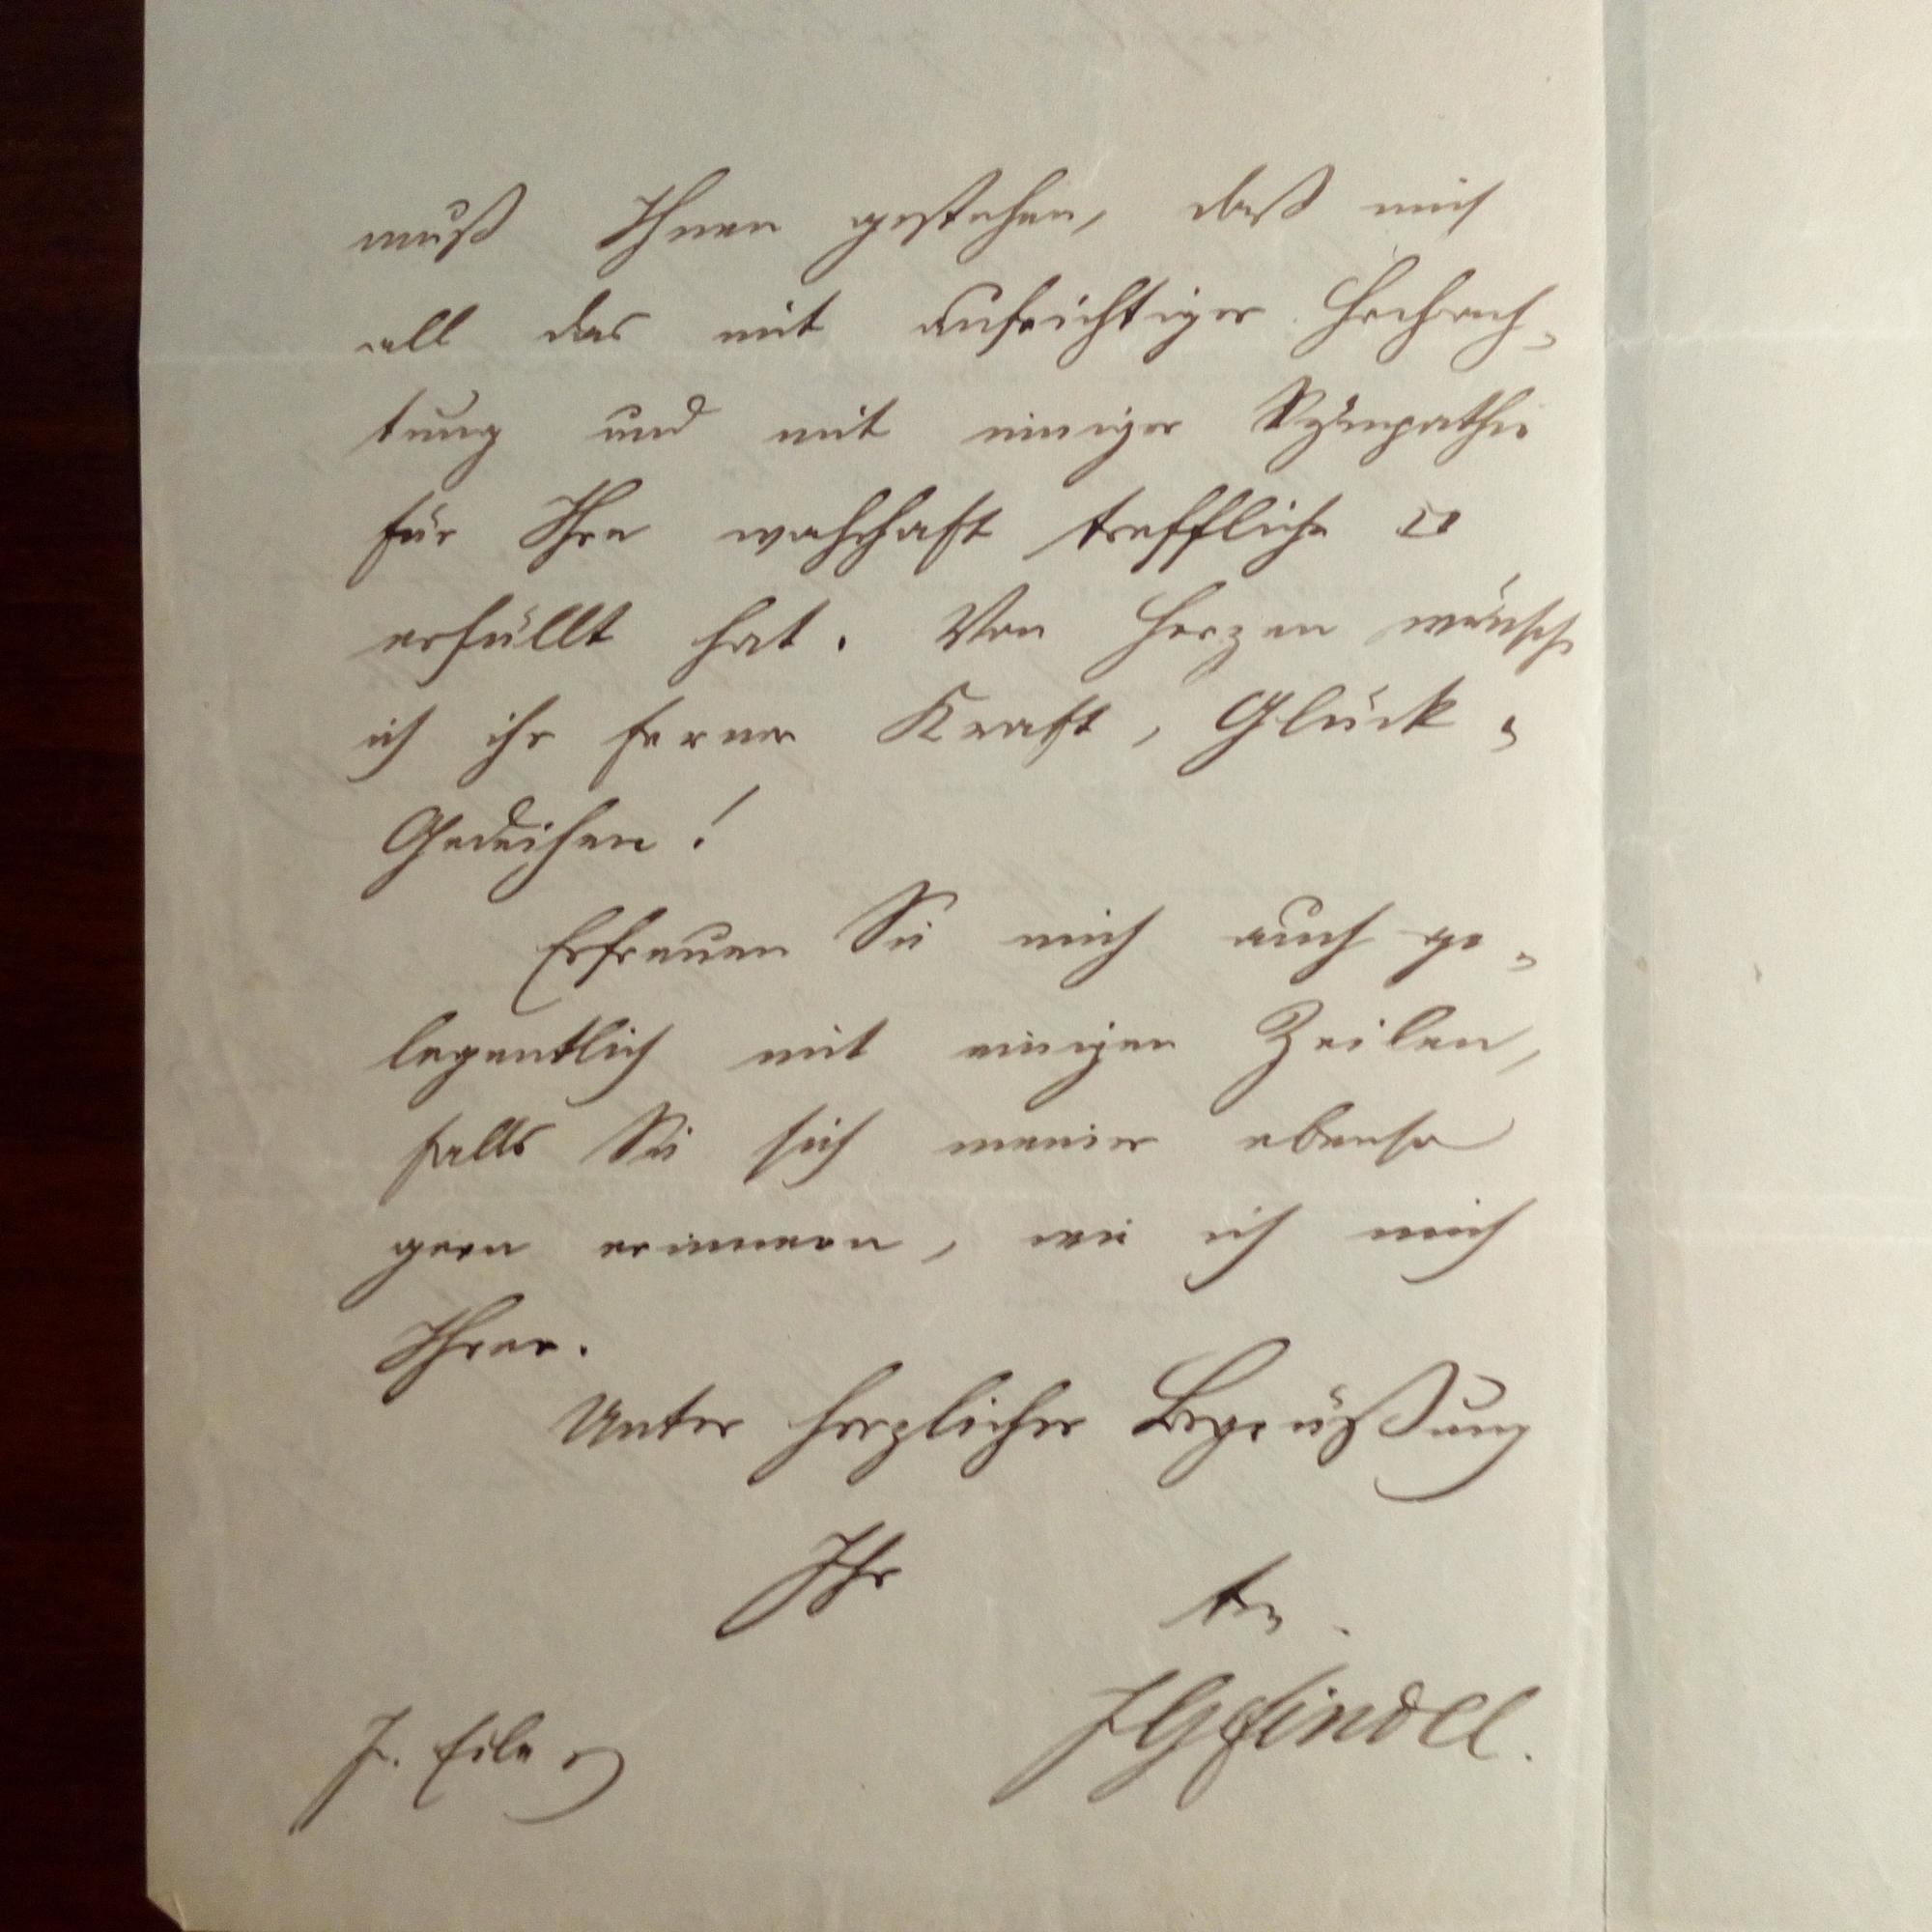 muß Ihnen gestehen, daß mich
all das mit aufrichtiger Hochach-
tung und mit inniger Sympathie
für Ihre wahrhaft treffliche
erfüllt hat. Von Herzen wünsche
ich ihr ferner Kraft, Glück
Gedeihen!
Erfreuen Sie mich auch ge-
legentlich mit einigen Zeilen,
falls Sie sich meiner ebenso
gern erinnern, wie ich mich
Ihrer.
Unter herzlicher Begrüßung
Ihr
JGFindel.